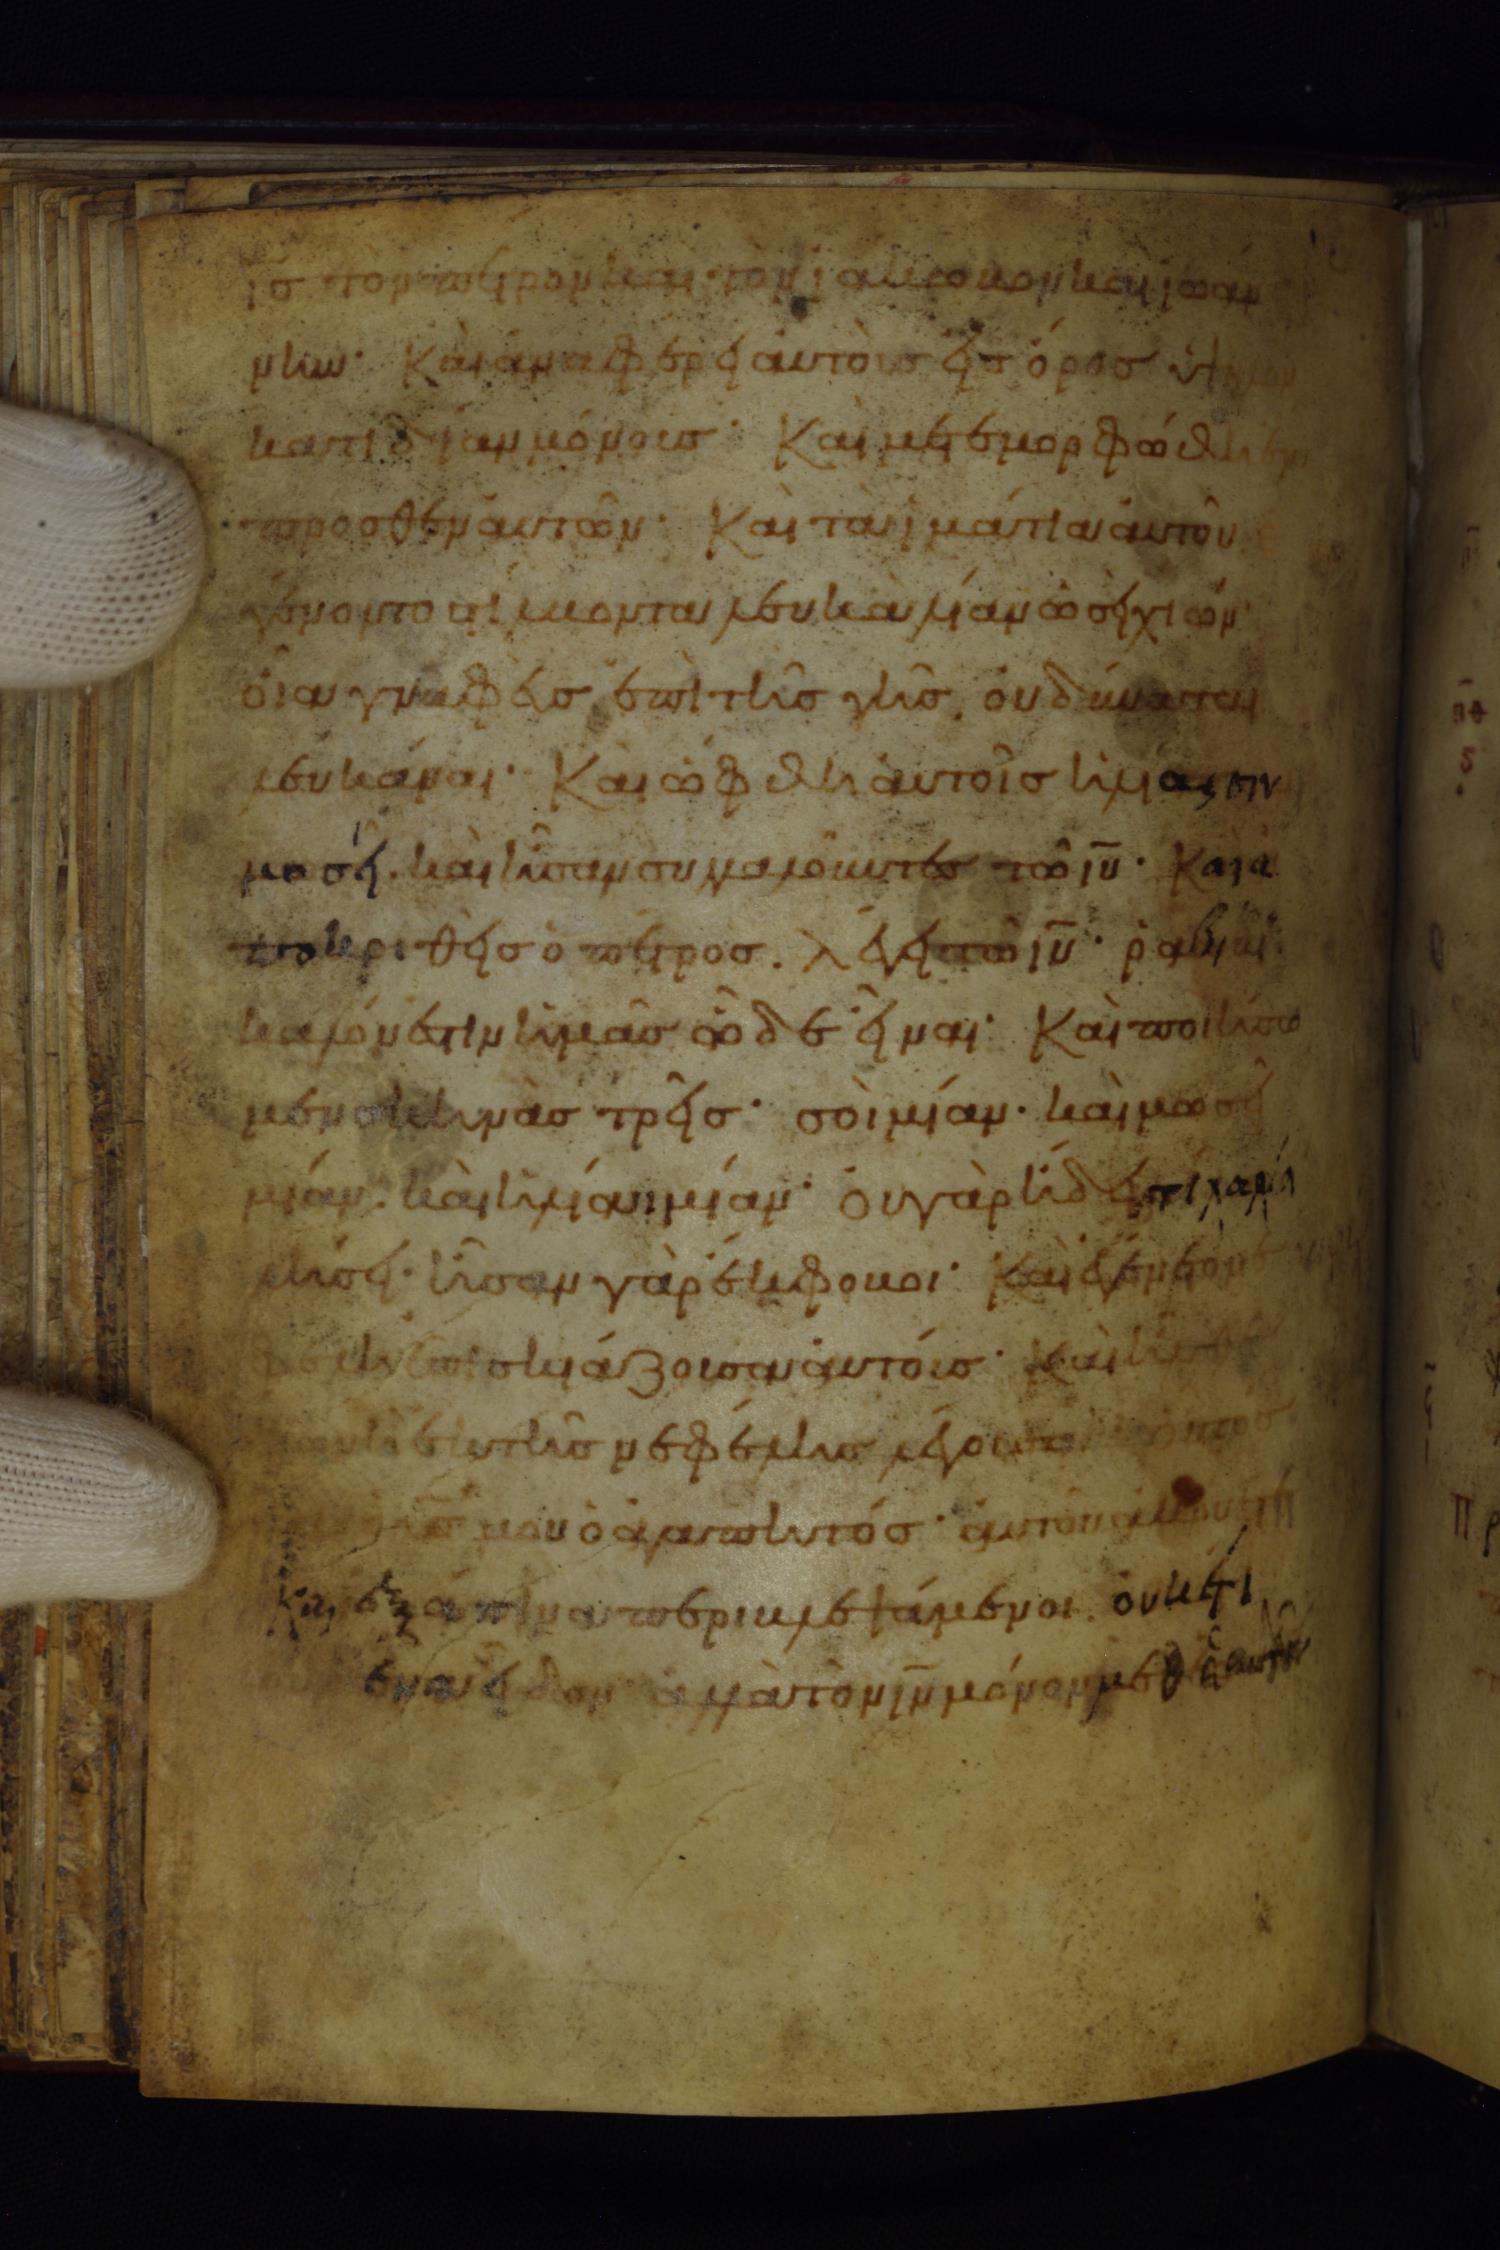 ις τὸν πέτρον καὶ τὸν ϊάκωβον καὶ ϊωάν
νην· Καὶ ἀναφέρει ἀυτοὺς εἰς ὄρος ὑψηλὸν
κατιδίαν μόνους· Καὶ μετεμορφώθη ἔμ
προσθεν ἀυτῶν· Καὶ τὰ ϊμάτια ἀυτοῦ ἐ
γένοντο στίλβοντα λευκὰ λίαν ὡσεὶ χιών·
οἷα γναφεὺς ἐπὶ τῆς γῆς, οὐ δύναται
λευκάναι· Καὶ ὤφθη ἀυτοῖς ἠλίας σὺν
μωσεῖ. καὶ ἦσαν συλλαλοῦντες τῶ ιυ· Και ἀ
ποκριθεὶς ὁ πέτρος. λέγει τῶ ιυ· ῥαββεί·
καλόν ἐστιν ἡμᾶς ὧδε εἶναι· Καὶ ποιήσω
μεν σκηνὰς τρεῖς· σοὶ μίαν· καὶ μωσεῖ
μίαν. καὶ ἠλία μίαν· οὐ γὰρ ἤδει τί λαλή
σει· ἦσαν γὰρ ἔκφοβοι· Καὶ ἐγένετο νε
φέλη ἐπισκιάζουσα ἀυτοῖς· Καὶ ἦλθε
φωνὴ ἐκ τῆς νεφέλης λέγουσα οὗτός
ἐστιν ὁ υς μου ὁ ἀγαπητός· ἀυτοῦ ἀκούετε
Και ἐξάπινα περιβλεψάμενοι. οὐκέτι
οὐδένα εἶδον· ἀλλὰ τὸν ιν μόνον μεθ ἑαυτῶν